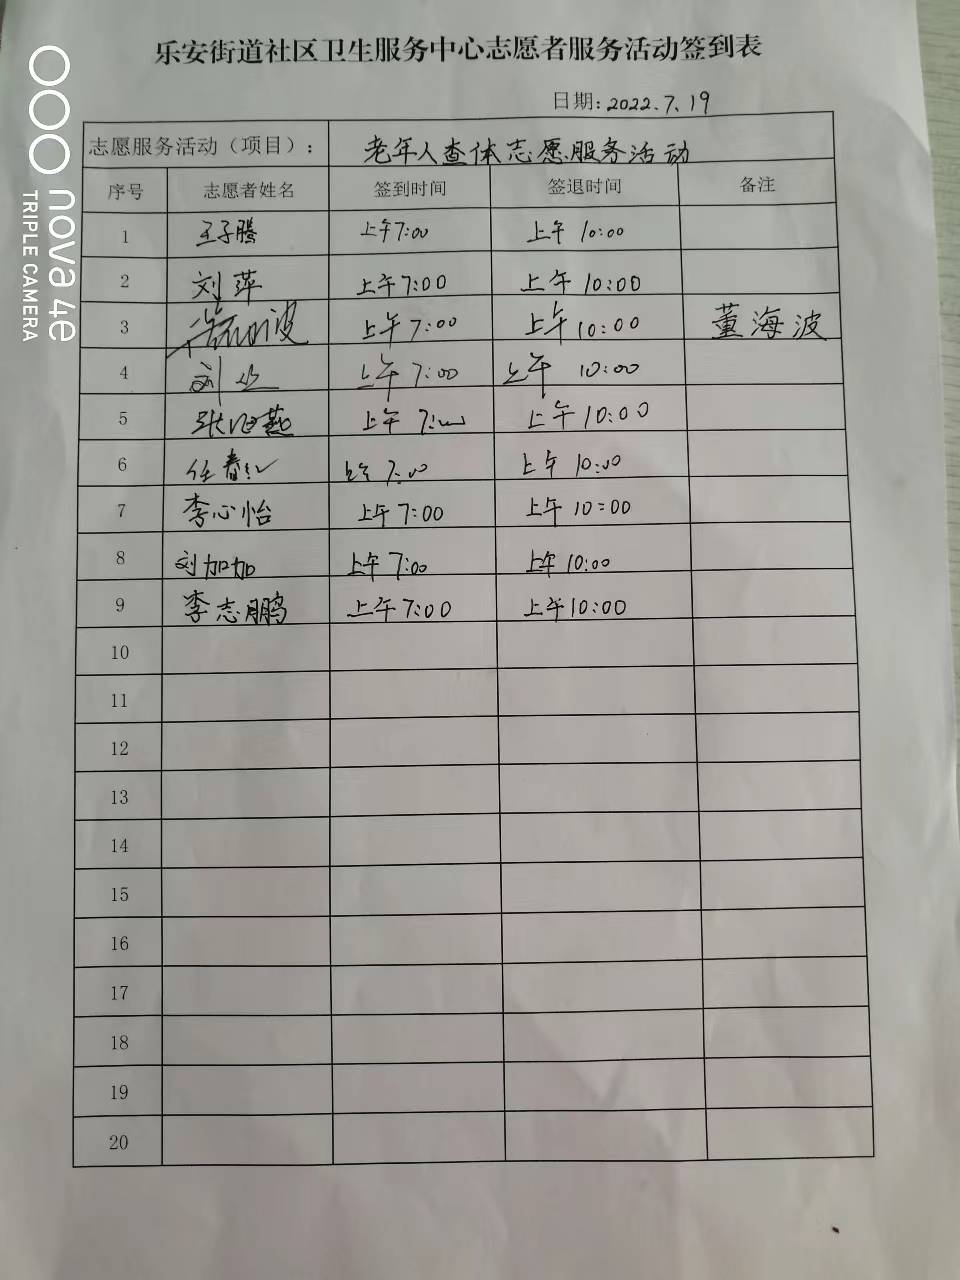 乐安街道社区卫生服务中心志愿者服务活动签到表
日期：2022.7.19
志愿服务活动（项目）： 老年人查体志愿服务活动
序号 志愿者姓名 签到时间 签退时间 备注
1 王子腾 上午7:00 上午 10:00
2 刘萍 上午7:00 上午 10:00
3 上午 7:00 上午10:00 董海波
4 刘 上午 7:00 上午 10:00
5 张 燕 上午 7:00 上午10:00
6 任春红 上午 7:00 上午 10:00
7 李心怡 上午7:00 上午10:00
8 刘加加 上午 7:00 上午10:00
9 李志鹏 上午7:00 上午10:00
10
11
12
13
14
15
16
17
18
19
20
nova 4e
TRIPLE CAMERA